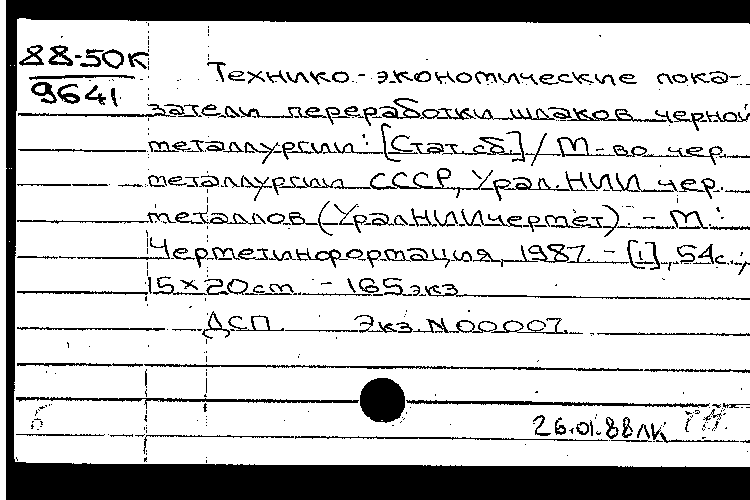 88-50К
9641
Технико-экономические пока-
затели переработки шлаков черной
металлургии: [Стат. сб.] / М-во чер.
металлургии СССР, Урал. НИИ чер.
металлов (УралНИИчермет). - М.:
Черметинформация, 1987. - [1], 54с.;
15×20cm - 165экз
ДСП. Экз. N00007.
б
26.01.88ЛК